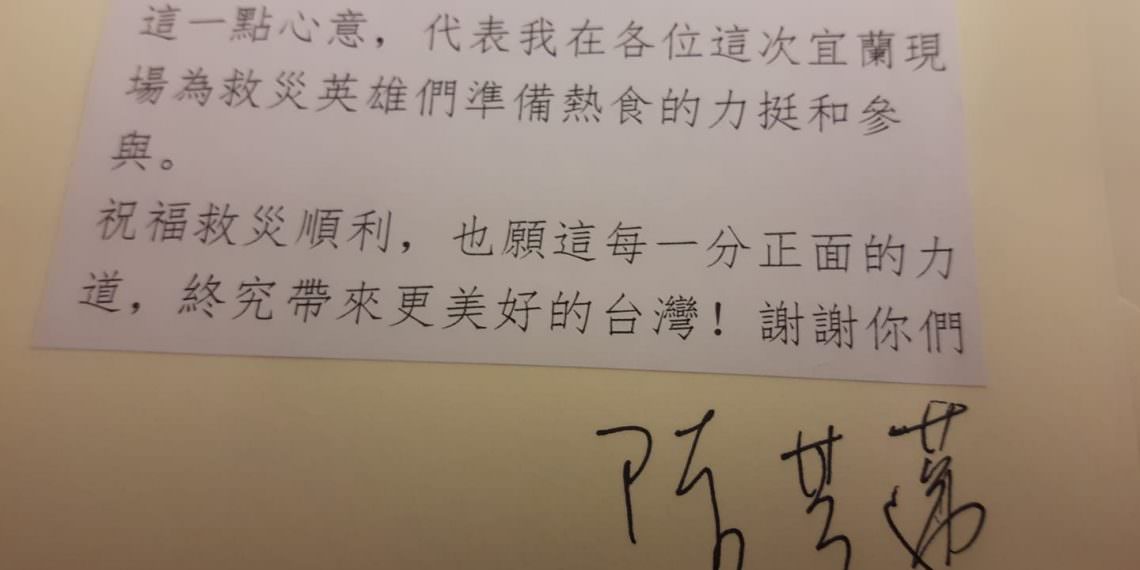 這一點心意，代表我在各位這次宜蘭現
場為救災英雄們準備熱食的力挺和參
與。
祝福救災順利，也願這每一分正面的力
道，終究帶來更美好的台灣！謝謝你們